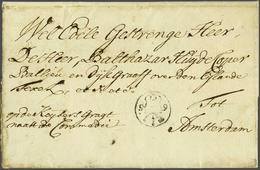 Wel Edele Gestrenge Heer
De Heer, Balthazar Huydecoper
Bailliu en Dijkgraaff over den Eylande
Texel, et et
op de Keysers Gragt Tot
naast de Commedie Amsterdam